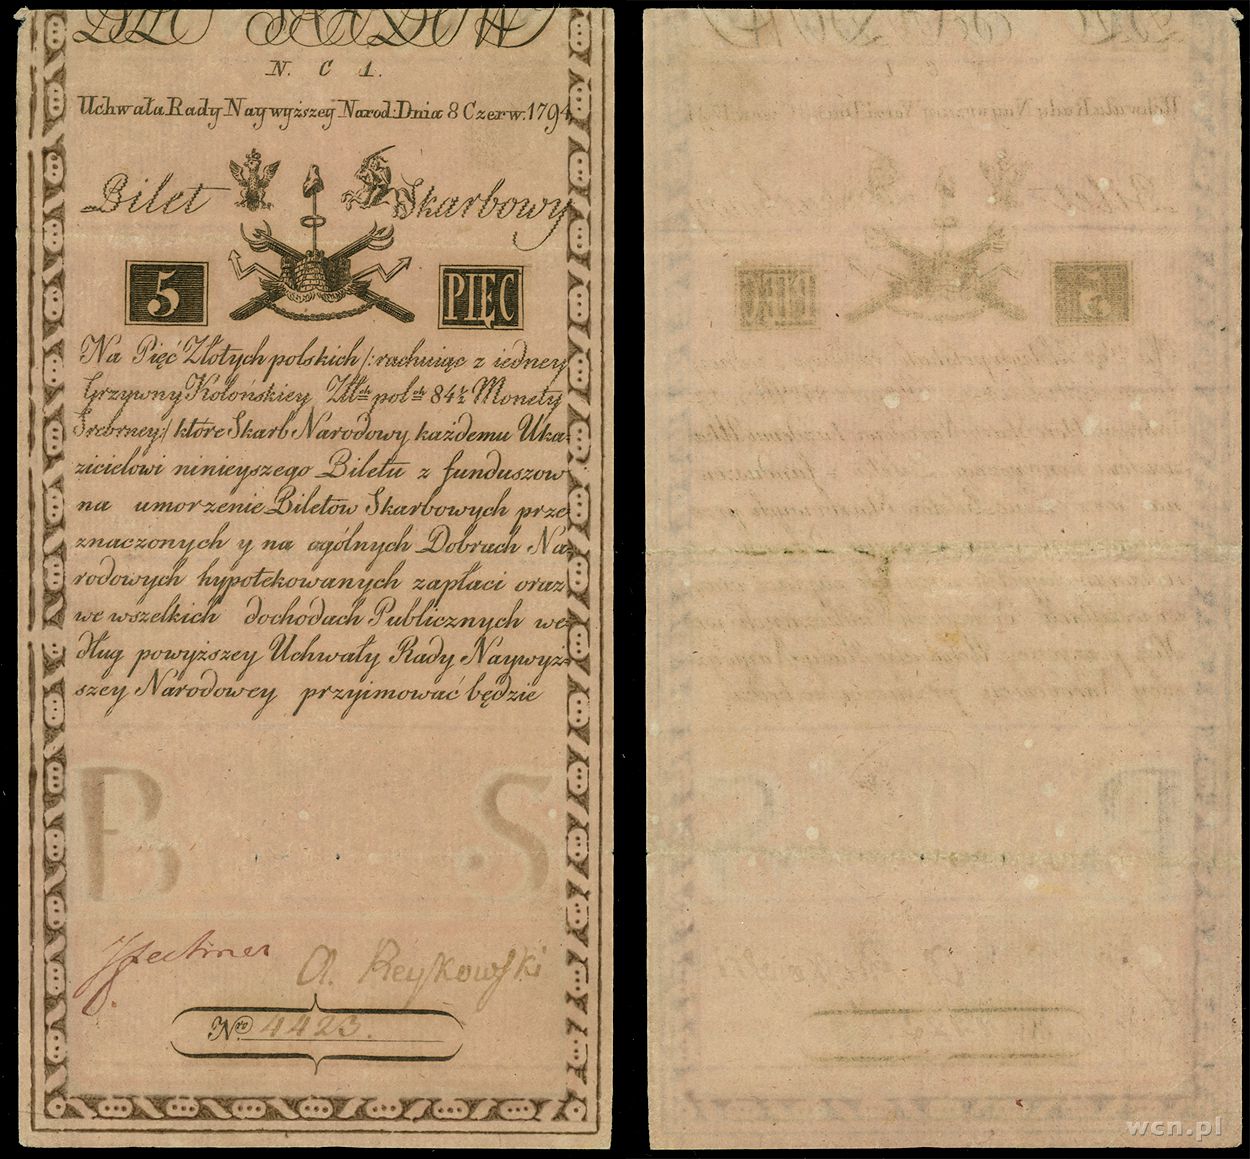 N. C 1.
Uchwała Rady Naywyższey Narod: Dnia 8 Czerw: 1794
Bilet Skarbowy
5 PIĘC
Na Pięć Złotych polskich /: rachuiąc z iedney
Grzywny Kolońskiey Złt: pol: 84½ Monety
Srebrney :/ które Skarb Narodowy każdemu Uka-
zicielowi ninieyszego Biletu z funduszow
na umorzenie Biletow Skarbowych prze-
znaczonych y na ogólnych Dobrach Na-
rodowych hypotekowanych zapłaci oraz
we wszelkich dochodach Publicznych we-
dług powyższey Uchwały Rady Naywyż-
szey Narodowey przyimować będzie
B S
A. Reykowski
Nro 4423.
wcn.pl